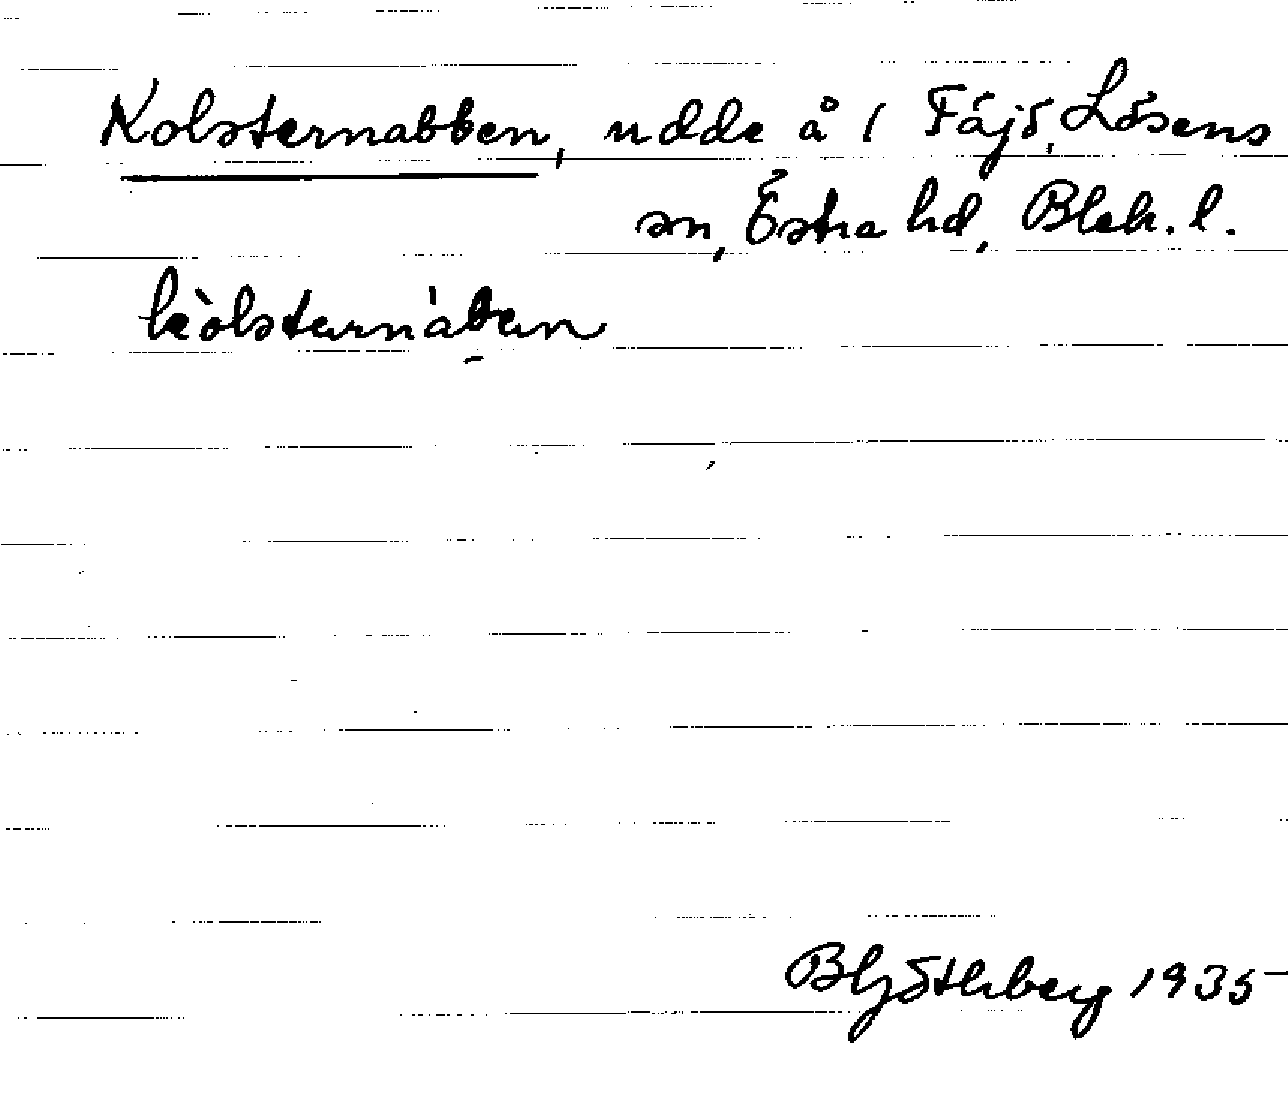 Kolsternabben, udde å i Fäjö, Lösens
sn, Östra hd, Blek. l.
kòlsternában
BHjöthberg 1935